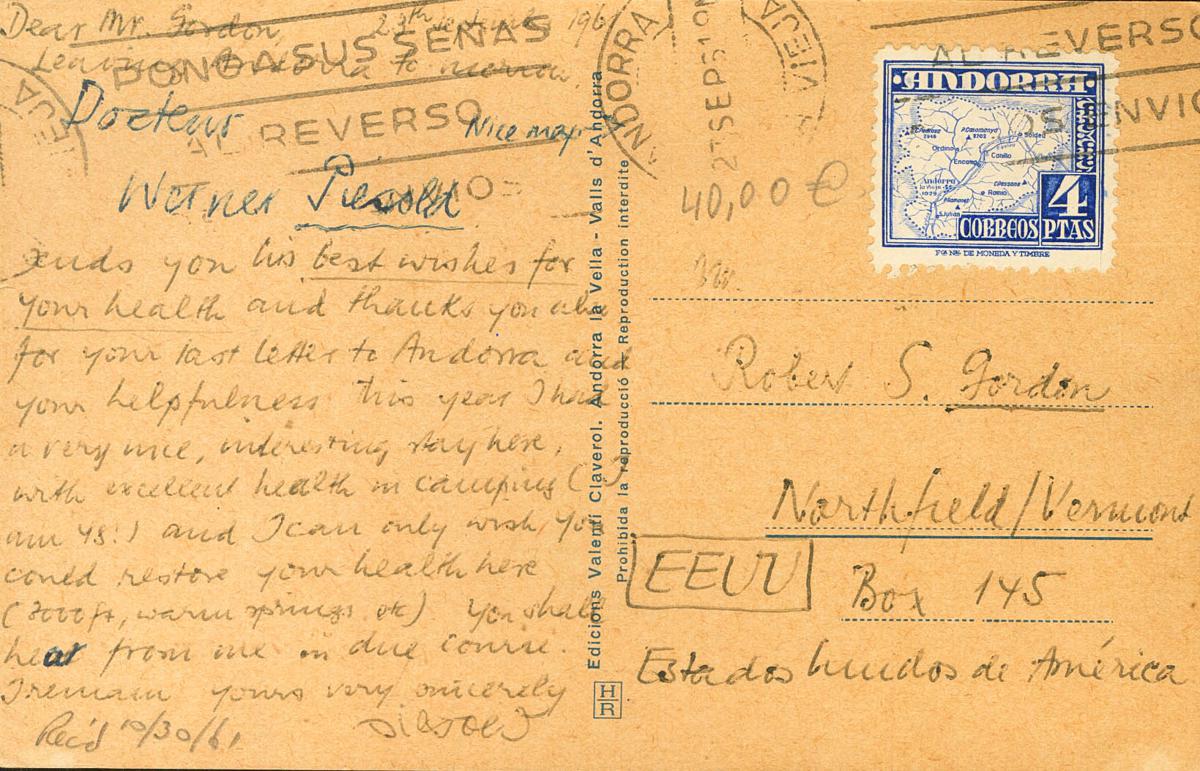 Dear Mr. Gordon, 23th September 1961
Leaving Andorra to morrow
Docteur
Nice map
Werner
sends you his best wishes for
your health and thanks you also
for your last letter to Andorra and
your helpfulness. This year I had
a very nice, interesting stay here,
with excellent health in camping (I
am 48!) and I can only wish, you
could restore your health here
(3000 ft, warm springs etc) You shall
hear from me in due course.
I remain yours very sincerely
Rec'd 10/30/61
PONGA SUS SEÑAS
AL REVERSO
ANDORRA
VIEJA
23 SEP 51
AL REVERSO
ENVIO
40,00 €
·ANDORRA·
Ordino
Encamp
Canillo
Soldeu
Andorra
la Vieja
CORREOS 4 PTAS
F.N. DE MONEDA Y TIMBRE
Edicions Valentí Claverol. Andorra la Vella - Valls d'Andorra
Prohibida la reproducció - Reproduction interdite
HR
Robert S. Gordon
Northfield/Vermont
EEUU
Box 145
Estados Unidos de América